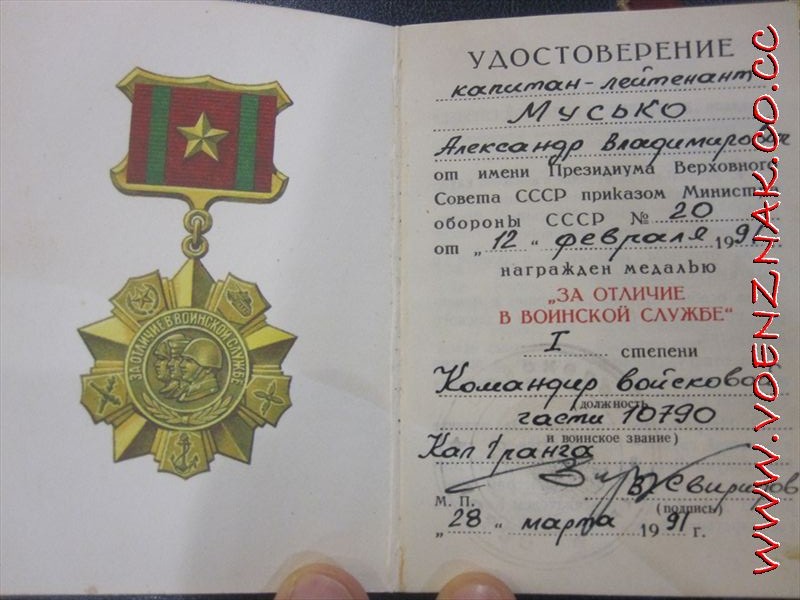 ЗА ОТЛИЧИЕ В ВОИНСКОЙ СЛУЖБЕ
УДОСТОВЕРЕНИЕ
капитан-лейтенант
Мусько
Александр Владимирович
от имени Президиума Верховного
Совета СССР приказом Министра
обороны СССР № 20
от „12“ февраля 1991
награжден медалью
„ЗА ОТЛИЧИЕ
В ВОИНСКОЙ СЛУЖБЕ“
I степени
Командир войсковой
(должность
части 10790
и воинское звание)
Кап 1 ранга
(подпись)
М. П.
„28“ марта 1991 г.
www.VOENZNAK.CO.CC